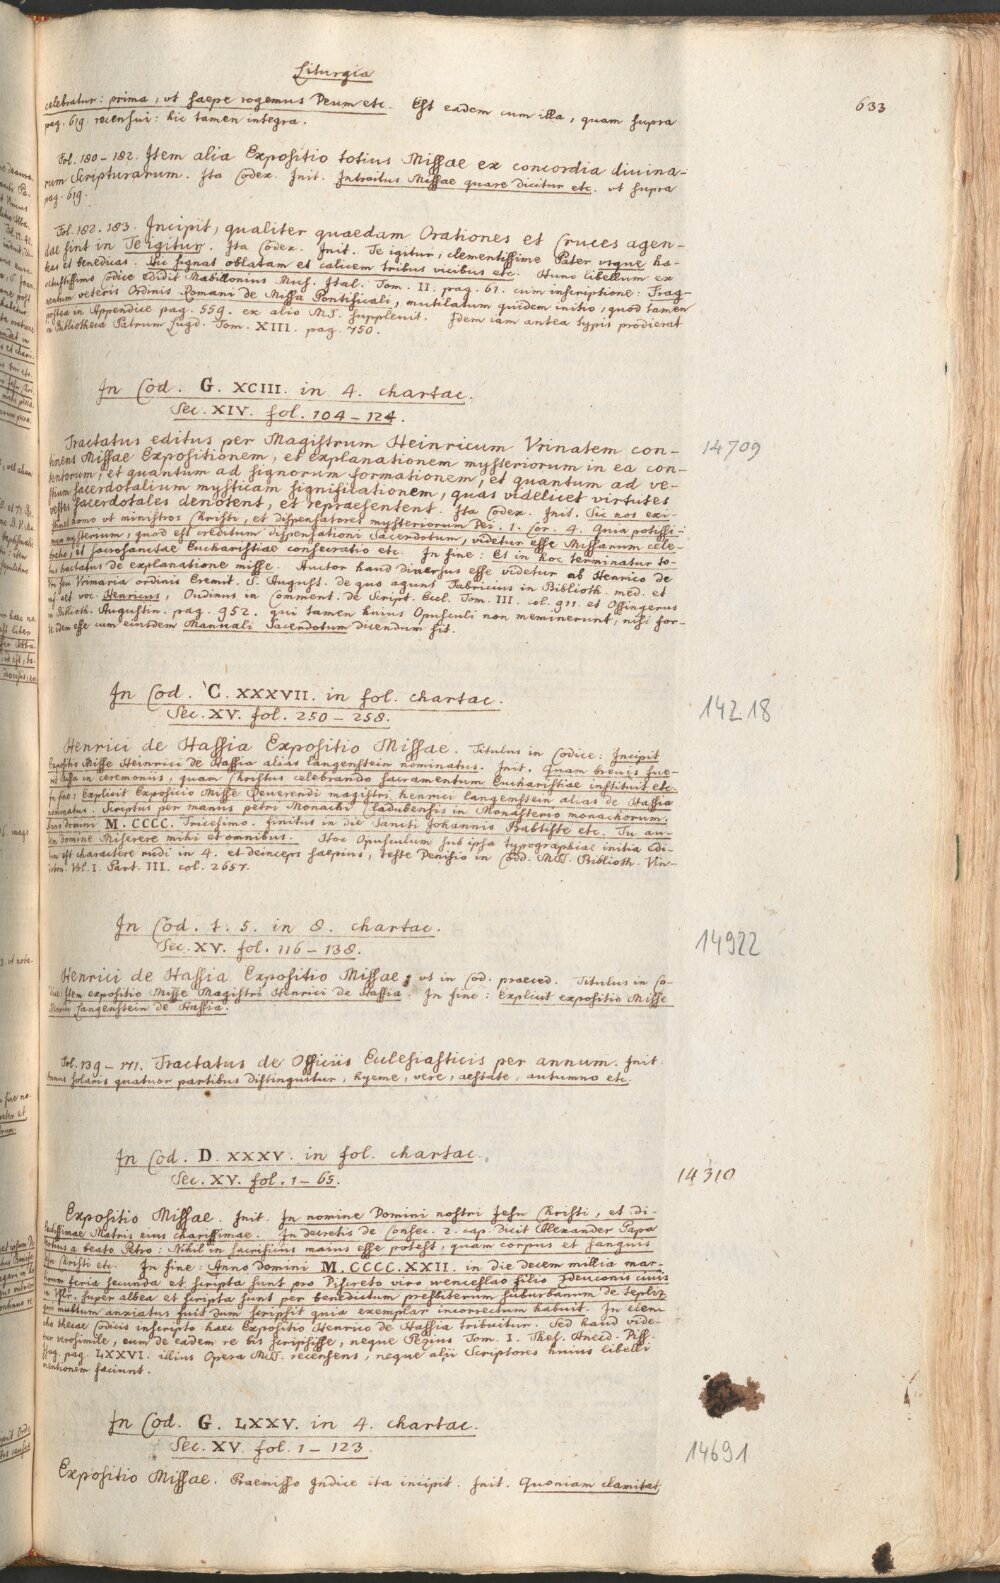 Liturgia
633
celebratur: prima, ut saepe rogemus Deum etc. Est eadem cum illa, quam supra
pag. 619. recensui: hic tamen integra.
Fol. 180 – 182. Item alia Expositio totius Missae ex concordia divina-
rum Scripturarum. Ita Codex. Init. Introitus Missae quare dicitur etc. ut supra
pag. 619.
Fol. 182. 183. Incipit, qualiter quaedam Orationes et Cruces agen-
dae sint in Te igitur. Ita Codex. Init. Te igitur, clementissime Pater usque ha-
eas et benedicas. Hic signat oblatam et calicem tribus vicibus etc. Hunc libellum ex
vetustissimo Codice edidit Mabillonius Mus. Ital. Tom. II. pag. 61. cum inscriptione: Frag-
mentum veteris Ordinis Romani de Missa Pontificali, mutilatum quidem initio, quod tamen
postea in Appendice pag. 559. ex alio MS. supplevit. Idem iam antea typis prodierat
in Bibliotheca Patrum Lugd. Tom. XIII. pag. 750.
In Cod. G. XCIII. in 4. chartac.
Sec. XIV. fol. 104 – 124.
14709
Tractatus editus per Magistrum Heinricum Vrinatem con-
tinens Missae Expositionem, et explanationem mysteriorum in ea con-
tentorum, et quantum ad signorum formationem, et quantum ad ve-
stium sacerdotalium mysticam significationem, quas videlicet virtutes
vestes sacerdotales denotent, et repraesentent. Ita Codex. Init. Sic nos exi-
stimet homo ut ministros Christi, et dispensatores mysteriorum Dei. 1. Cor. 4. Quia potissi-
mum mysterium, quod est creditum dispensationi Sacerdotum, videtur esse Missarum cele-
bratio, et sacrosanctae Eucharistiae consecratio etc. In fine: Et in hoc terminatur to-
tus tractatus de explanatione misse. Auctor haud diversus esse videtur ab Henrico de
seu Vrimaria ordinis Eremit. S. August. de quo agunt Fabricius in Biblioth. med. et
inf. aet. voc. Henricus, Oudinus in Comment. de Script. Eccl. Tom. III. col. 911. et Ossingerus
in Biblioth. Augustin. pag. 952. qui tamen huius Opusculi non meminerunt, nisi for-
te idem esse cum eiusdem Manuali Sacerdotum dicendum sit.
In Cod. C. XXXVII. in fol. chartac.
Sec. XV. fol. 250 – 258.
14218
Henrici de Hassia Expositio Missae. Titulus in Codice: Incipit
Expositio Misse Heinrici de Hassia alias Langenstein nominatus. Init. Quam brevis fue-
rit Missa in ceremoniis, quam Christus celebrando sacramentum Eucharistiae instituit etc.
In fine: Explicit Exposicio Misse Reverendi magistri henrici langemstein alias de Hassia
nominatus. Scriptus per manus petri Monachi Cladubensis in Monasterio monachorum.
Anno domini M. CCCC. Tricesimo. finitus in die Sancti Johannis Babtiste etc. Tu au-
tem domine Miserere mihi et omnibus. Hoc Opusculum sub ipsa typographiae initia edi-
tum est charactere rudi in 4. et deinceps saepius, teste Denisio in Codd. MSS. Biblioth. Vin-
dobon. Vol. I. Part. III. col. 2657.
In Cod. t. 5. in 8. chartac.
Sec. XV. fol. 116 – 138.
14922
Henrici de Hassia Expositio Missae, ut in Cod. praeced. Titulus in Co-
dice: Item expositio Misse Magistri Henrici de Hassia. In fine: Explicit expositio Misse
Henrici Langenstein de Hassia.
Fol. 139 – 171. Tractatus de Officiis Ecclesiasticis per annum. Init.
Annus solaris quatuor partibus distinguitur, hyeme, vere, aestate, autumno etc.
In Cod. D. XXXV. in fol. chartac.
Sec. XV. fol. 1 – 65.
14310
Expositio Missae. Init. In nomine Domini nostri Jesu Christi, et di-
lectissimae Matris eius charissimae. In decretis de Consec. 2. cap. dicit Alexander Papa
a beato Petro: Nihil in sacrificiis maius esse potest, quam corpus et sanguis
Christi etc. In fine: Anno domini M. CCCC. XXII. in die decem millia mar-
tirum feria secunda et scripta sunt pro Discreto viro wenceslao filio Ideuconis civis
super albea et scripta sunt per benedictum presbiterum suburbanum de teplicz
multum anxiatus fuit dum scripsit quia exemplar incorrectum habuit. In elen-
cho thecae Codicis inscripto haec Expositio Henrico de Hassia tribuitur. Sed haud vide-
tur verosimile, eum de eadem re bis scripsisse, neque Pezius Tom. I. Thes. Anecd. Diss.
Isag. pag. LXXVI. illius Opera MSS. recensens, neque alii Scriptores huius libelli
mentionem faciunt.
In Cod. G. LXXV. in 4. chartac.
Sec. XV. fol. 1 – 123.
14691
Expositio Missae. Praemisso Indice ita incipit. Init. Quoniam clamitat